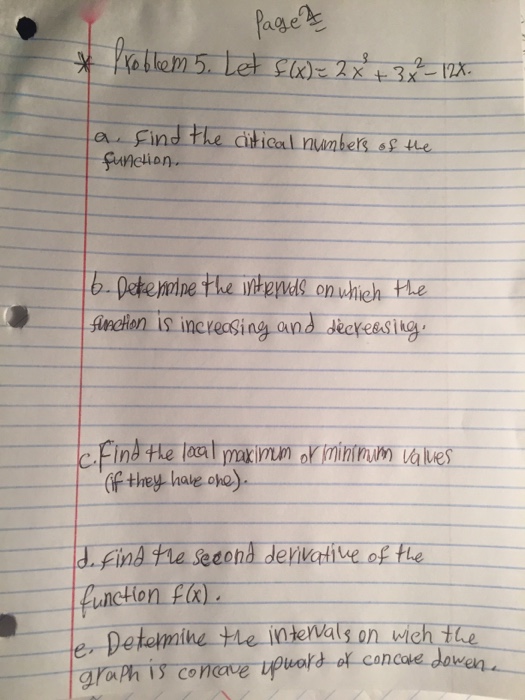 Page 2
* Problem 5. Let f(x) = 2x³ + 3x² - 12x.
a. Find the ciitical numbers of the
function.
b. Determine the intervals on which the
function is increasing and decreasing.
c. Find the local maximum or minimum values
(if they have one).
d. Find the second derivative of the
function f(x).
e. Determine the intervals on wich the
graph is concave upward or concave dowen.